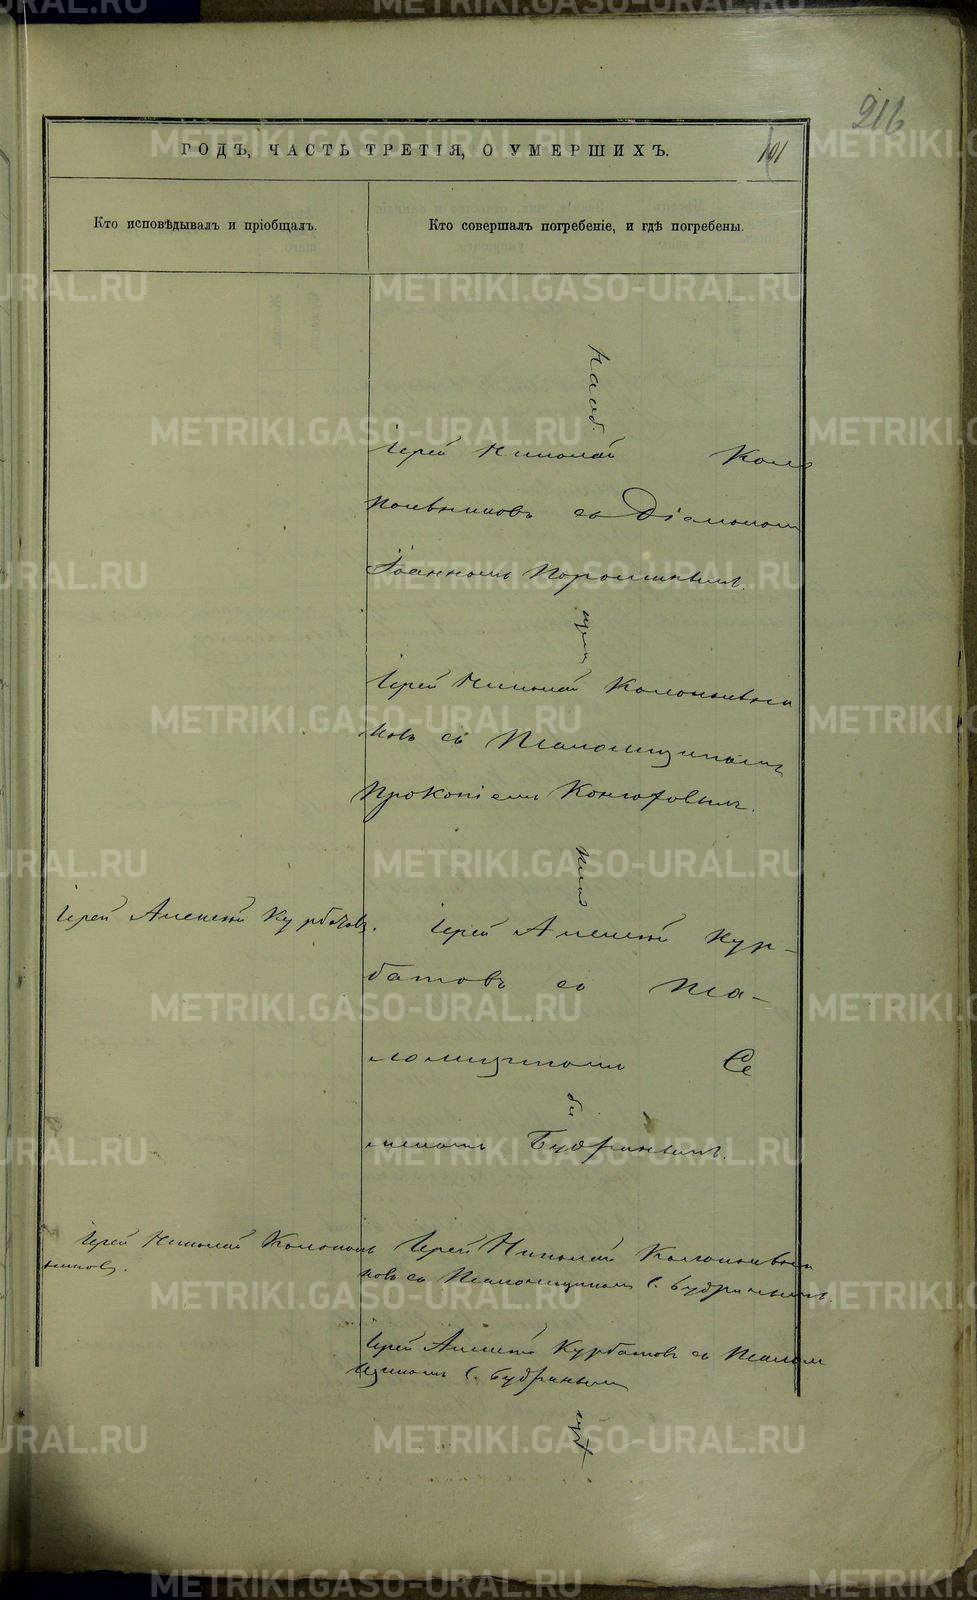 216
ГОДЪ, ЧАСТЬ ТРЕТІЯ, О УМЕРШИХЪ.
101
Кто исповѣдывалъ и пріобщалъ.
Кто совершалъ погребеніе, и гдѣ погребены.
Іерей Николай Коло
кольниковъ со Діакономъ
Іоанномъ Порошинымъ.
Іерей Николай Колокольни
ковъ съ Псаломщикомъ
Прокопіемъ Конюховымъ.
Іерей Алексѣй Курбатовъ.
Іерей Алексѣй Кур-
батовъ со Пса-
ломщикомъ Се
Будринымъ.
Іерей Николай Колоколь
никовъ.
Іерей Николай Колокольни
ковъ съ Псаломщикомъ С. Будринымъ.
Іерей Алексѣй Курбатовъ съ Псалом
щикомъ С. Будринымъ
METRIKI.GASO-URAL.RU